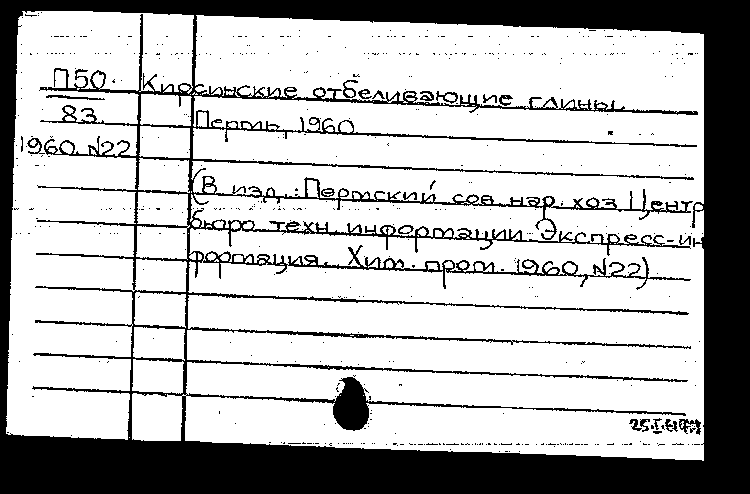 П50. Кирсинские отбеливающие глины.
83. Пермь, 1960
1960 N22
(В изд.: Пермский сов. нар. хоз. Центр
бюро техн. информации. Экспресс-ин
формация. Хим. пром. 1960, N22)